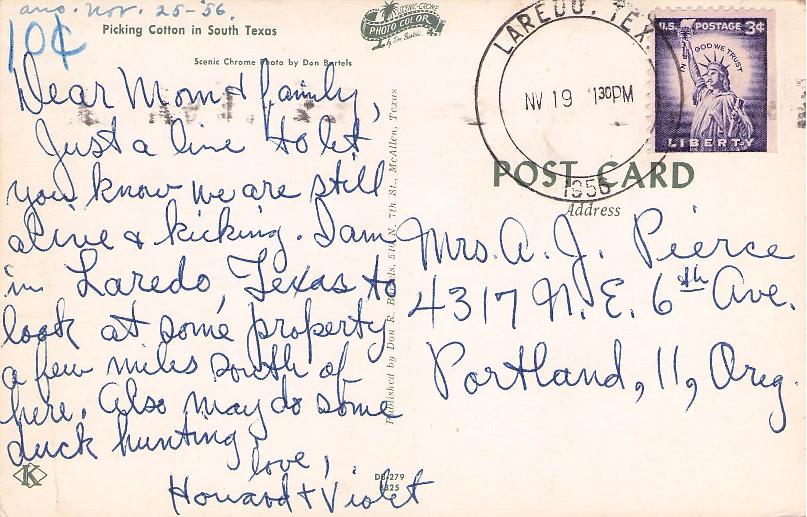 ans. Nov. 25-'56.
10¢
Picking Cotton in South Texas
Scenic Chrome Photo by Don Bartels
PHOTO COLOR
LAREDO, TEX.
NV 19 1 30 PM
1956
U.S. POSTAGE 3¢
IN GOD WE TRUST
LIBERTY
POST CARD
Address
Dear Mom & family,
Just a line to let
you know we are still
alive & kicking. I am
in Laredo, Texas to
look at some property
a few miles south of
here. Also may do some
duck hunting
love,
Howard + Violet
Published by Don R. Bartels, 511 N. 7th St., McAllen, Texas
Mrs. A. J. Pierce
4317 N. E. 6th Ave.
Portland, 11, Oreg.
K